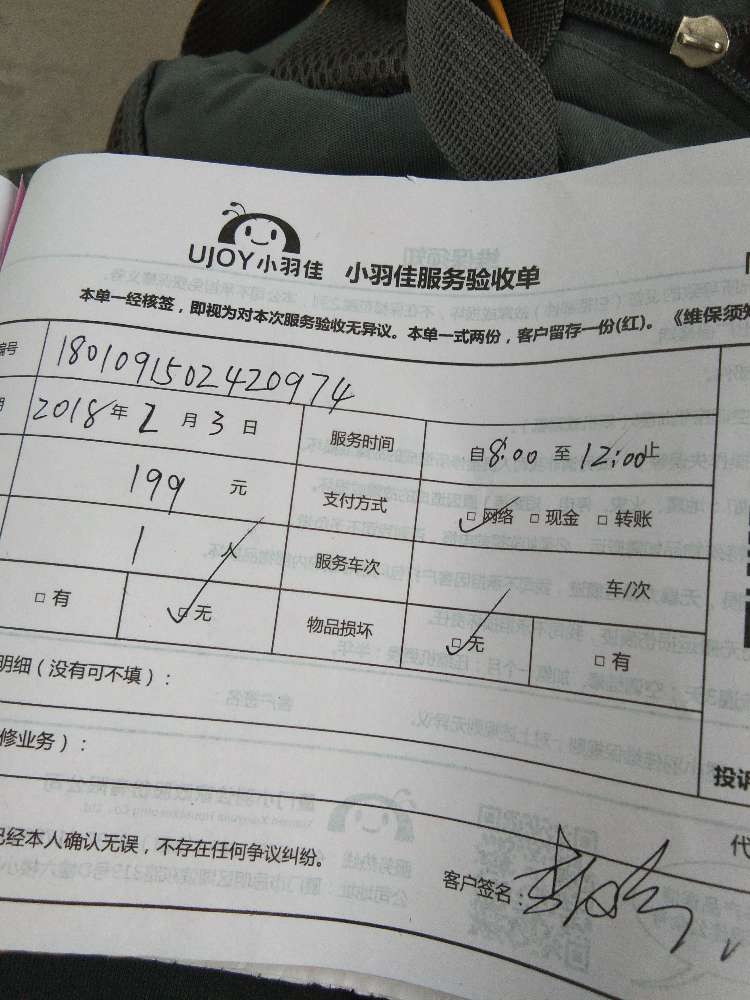 UJOY小羽佳 小羽佳服务验收单
本单一经核签，即视为对本次服务验收无异议。本单一式两份，客户留存一份(红)。《维保须知
编号 1801091502420974
2018年2月3日 服务时间 自8:00至12:00止
199元 支付方式 □网络 □现金 □转账
1人 服务车次 车/次
□有 □无 物品损坏 □无 □有
明细（没有可不填）：
修业务）：
投诉
已经本人确认无误，不存在任何争议纠纷。
代
客户签名：